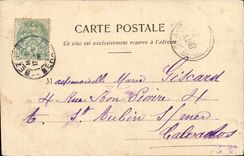 CARTE POSTALE
Ce côté est exclusivement réservé à l'adresse
Mademoiselle Marie Giscard
4 Rue Bon 4
à St Aubin s/mer
Calvados